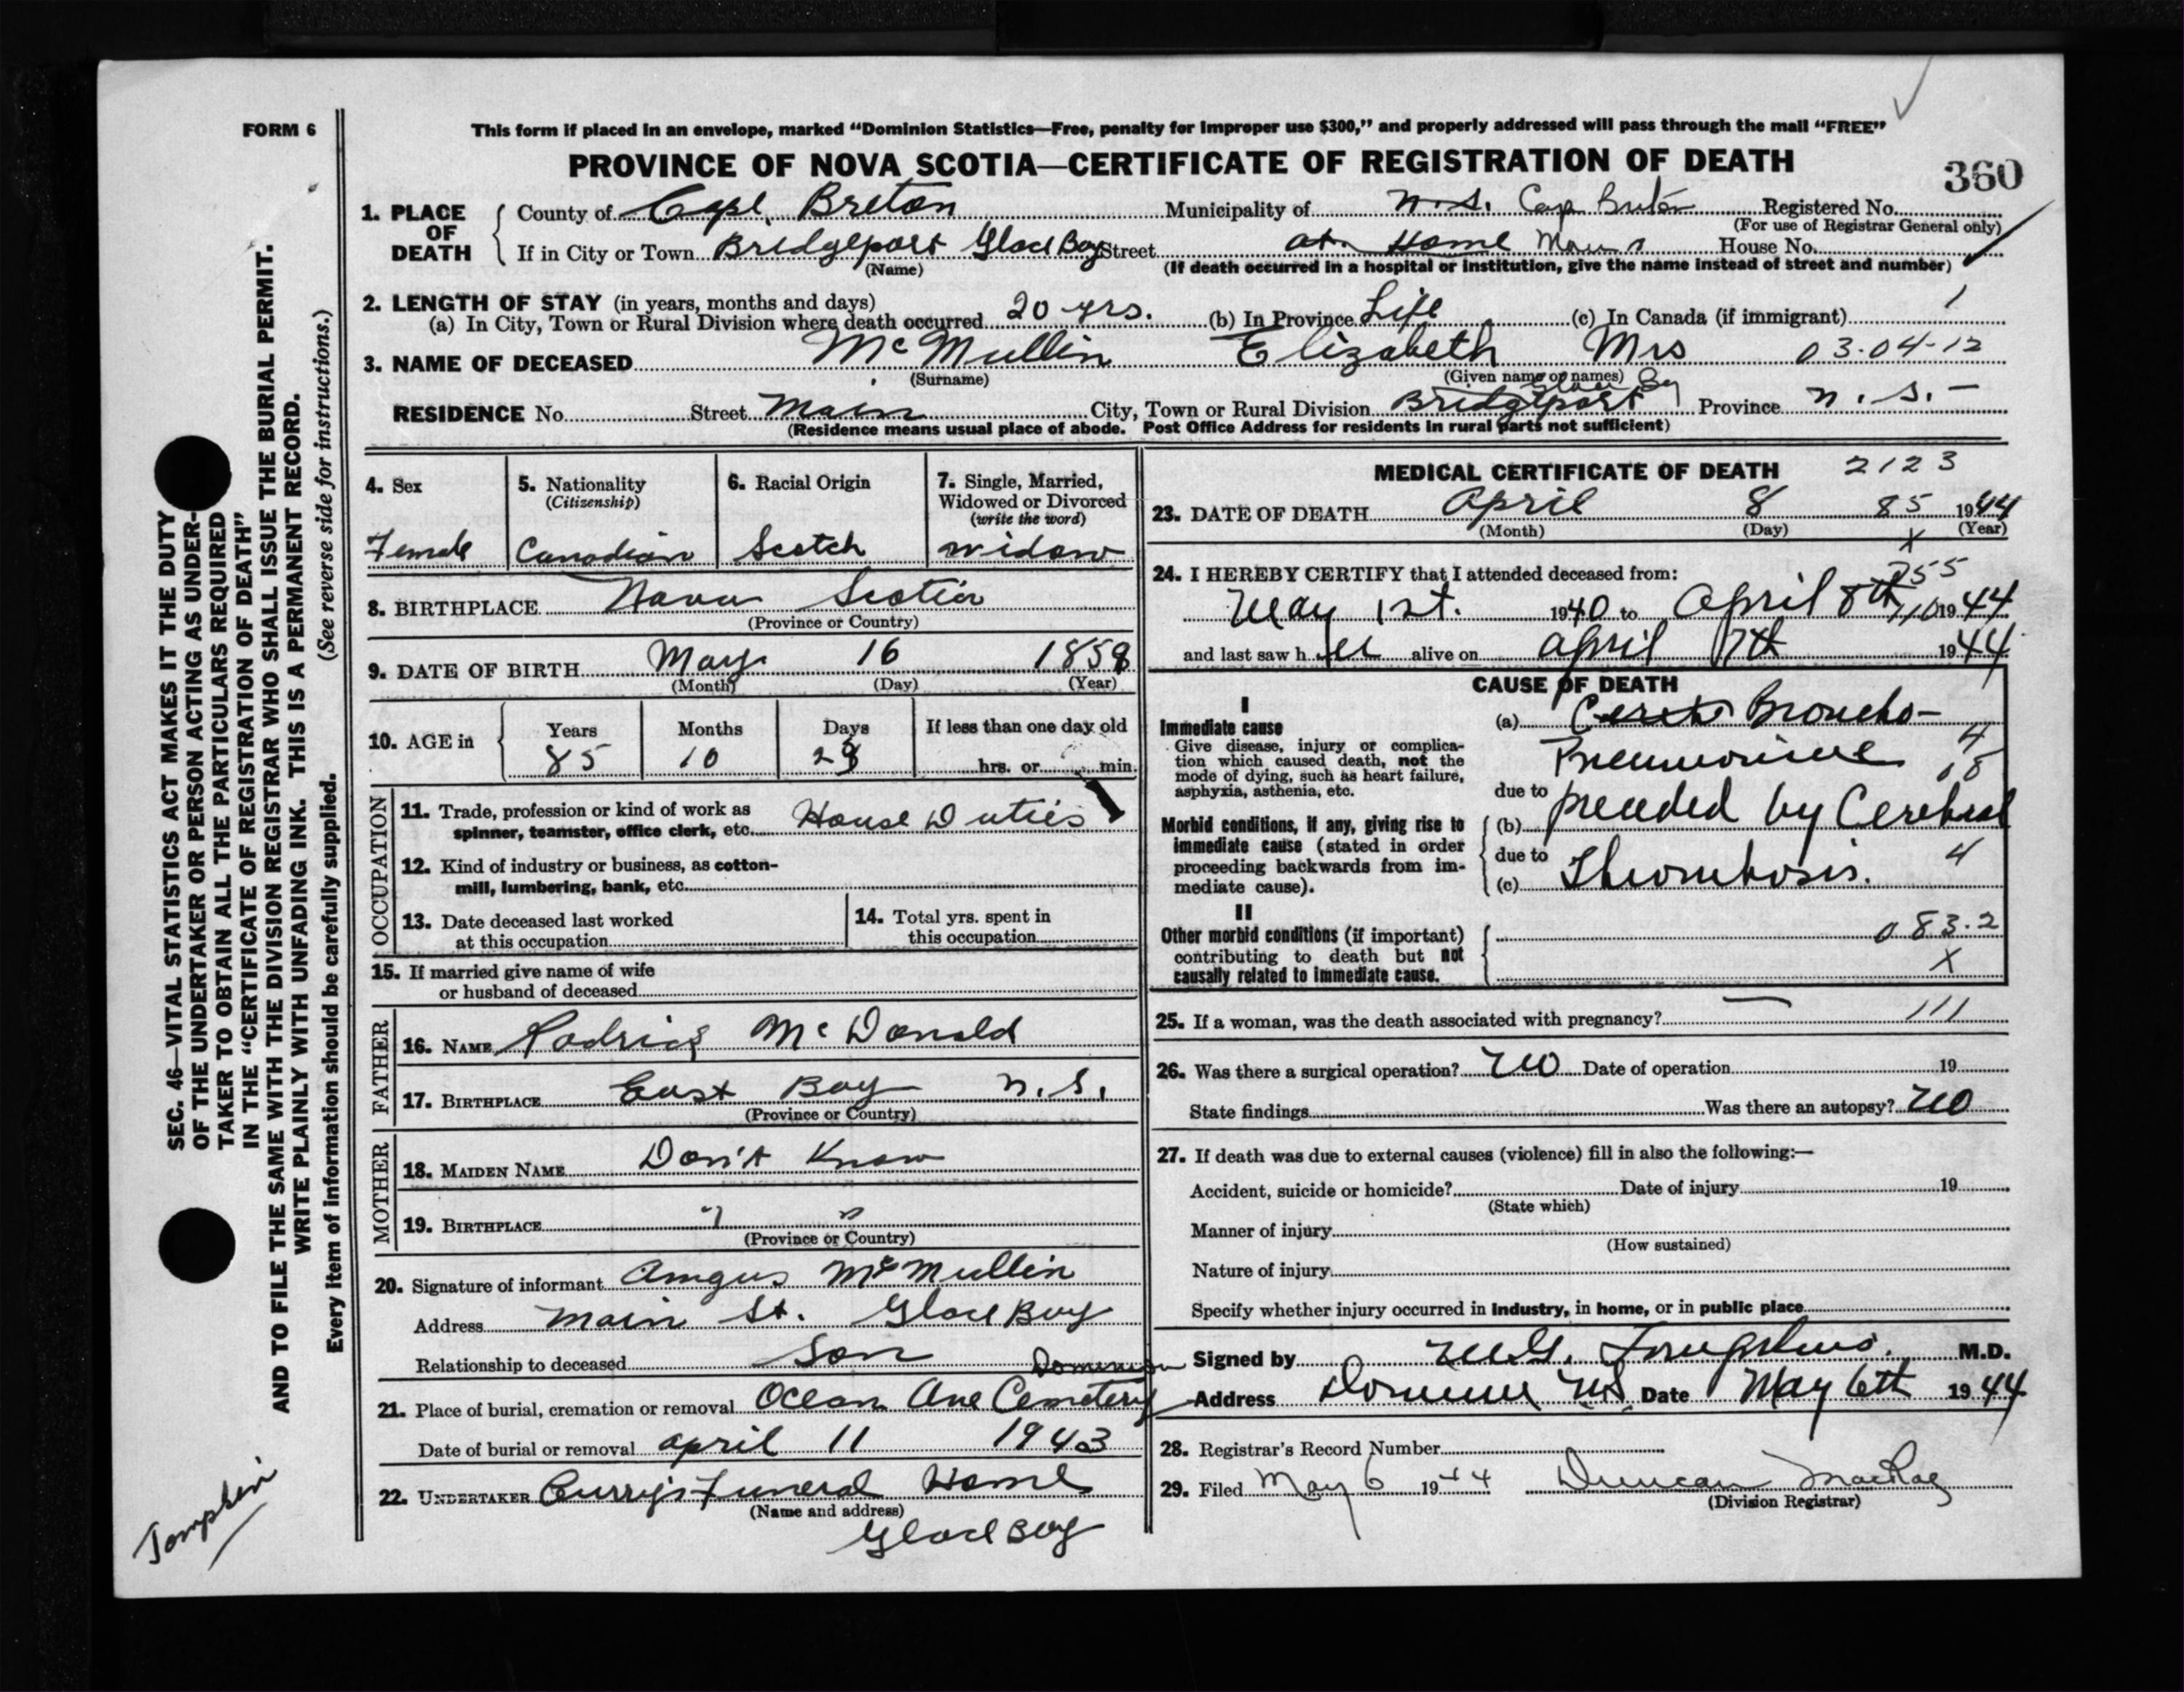 FORM 6
This form if placed in an envelope, marked “Dominion Statistics—Free, penalty for improper use $300,” and properly addressed will pass through the mail “FREE”
PROVINCE OF NOVA SCOTIA—CERTIFICATE OF REGISTRATION OF DEATH
360
1. PLACE OF DEATH
County of Cape Breton Municipality of N.S. Cap Breton Registered No.
(For use of Registrar General only)
If in City or Town Bridgeport Glace Bay Street at Home Main House No.
(Name) (If death occurred in a hospital or institution, give the name instead of street and number)
2. LENGTH OF STAY (in years, months and days)
(a) In City, Town or Rural Division where death occurred 20 yrs. (b) In Province Life (c) In Canada (if immigrant) 1
3. NAME OF DECEASED McMullin Elizabeth Mrs 03-04-12
(Surname) (Given name or names)
Glace Bay
RESIDENCE No. Street Main City, Town or Rural Division Bridgeport Province N.S. —
(Residence means usual place of abode. Post Office Address for residents in rural parts not sufficient)
4. Sex
Female
5. Nationality
(Citizenship)
Canadian
6. Racial Origin
Scotch
7. Single, Married,
Widowed or Divorced
(write the word)
widow
8. BIRTHPLACE Nova Scotia
(Province or Country)
9. DATE OF BIRTH May 16 1859
(Month) (Day) (Year)
10. AGE in
Years Months Days If less than one day old
85 10 23 hrs. or min.
OCCUPATION
11. Trade, profession or kind of work as
spinner, teamster, office clerk, etc. House Duties
12. Kind of industry or business, as cotton-
mill, lumbering, bank, etc.
13. Date deceased last worked
at this occupation
14. Total yrs. spent in
this occupation
15. If married give name of wife
or husband of deceased
FATHER
16. NAME Rodrick McDonald
17. BIRTHPLACE East Bay N.S.
(Province or Country)
MOTHER
18. MAIDEN NAME Don't Know
19. BIRTHPLACE " "
(Province or Country)
20. Signature of informant Amgus McMullin
Address Main St. Glace Bay
Relationship to deceased Son
Dominion
21. Place of burial, cremation or removal Ocean Ave Cemetery
Date of burial or removal April 11 1943
22. UNDERTAKER Curry's Funeral Home
(Name and address)
Glace Bay
MEDICAL CERTIFICATE OF DEATH 2123
23. DATE OF DEATH April 8 85 1944
(Month) (Day) (Year)
X
24. I HEREBY CERTIFY that I attended deceased from:
755
May 1st. 1940 to April 8th 110 1944
and last saw her alive on April 7th 1944
CAUSE OF DEATH
I
Immediate cause
Give disease, injury or complica-
tion which caused death, not the
mode of dying, such as heart failure,
asphyxia, asthenia, etc.
(a) Broncho-
Pneumonia 4
08
due to
Morbid conditions, if any, giving rise to
immediate cause (stated in order
proceeding backwards from im-
mediate cause).
(b) preceded by Cerebral
due to
(c) Thrombosis. 4
II
Other morbid conditions (if important)
contributing to death but not
causally related to immediate cause.
083.2
X
25. If a woman, was the death associated with pregnancy? — 111
26. Was there a surgical operation? No Date of operation 19
State findings Was there an autopsy? No
27. If death was due to external causes (violence) fill in also the following:—
Accident, suicide or homicide? Date of injury 19
(State which)
Manner of injury
(How sustained)
Nature of injury
Specify whether injury occurred in industry, in home, or in public place
Signed by M.G. Tompkins. M.D.
Address Dominion N.S. Date May 6th 1944
28. Registrar's Record Number
29. Filed May 6 1944 Duncan MacRae
(Division Registrar)
SEC. 46—VITAL STATISTICS ACT MAKES IT THE DUTY
OF THE UNDERTAKER OR PERSON ACTING AS UNDER-
TAKER TO OBTAIN ALL THE PARTICULARS REQUIRED
IN THE “CERTIFICATE OF REGISTRATION OF DEATH”
AND TO FILE THE SAME WITH THE DIVISION REGISTRAR WHO SHALL ISSUE THE BURIAL PERMIT.
WRITE PLAINLY WITH UNFADING INK. THIS IS A PERMANENT RECORD.
Every item of information should be carefully supplied. (See reverse side for instructions.)
Tompkins